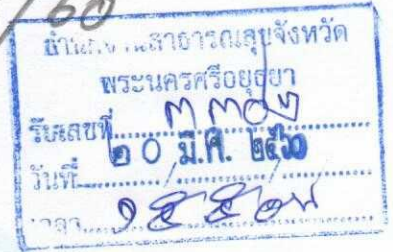 /60
สำนักงานสาธารณสุขจังหวัด
พระนครศรีอยุธยา
รับเลขที่
วันที่ ๒๐ มี.ค. ๒๕๖๐
เวลา